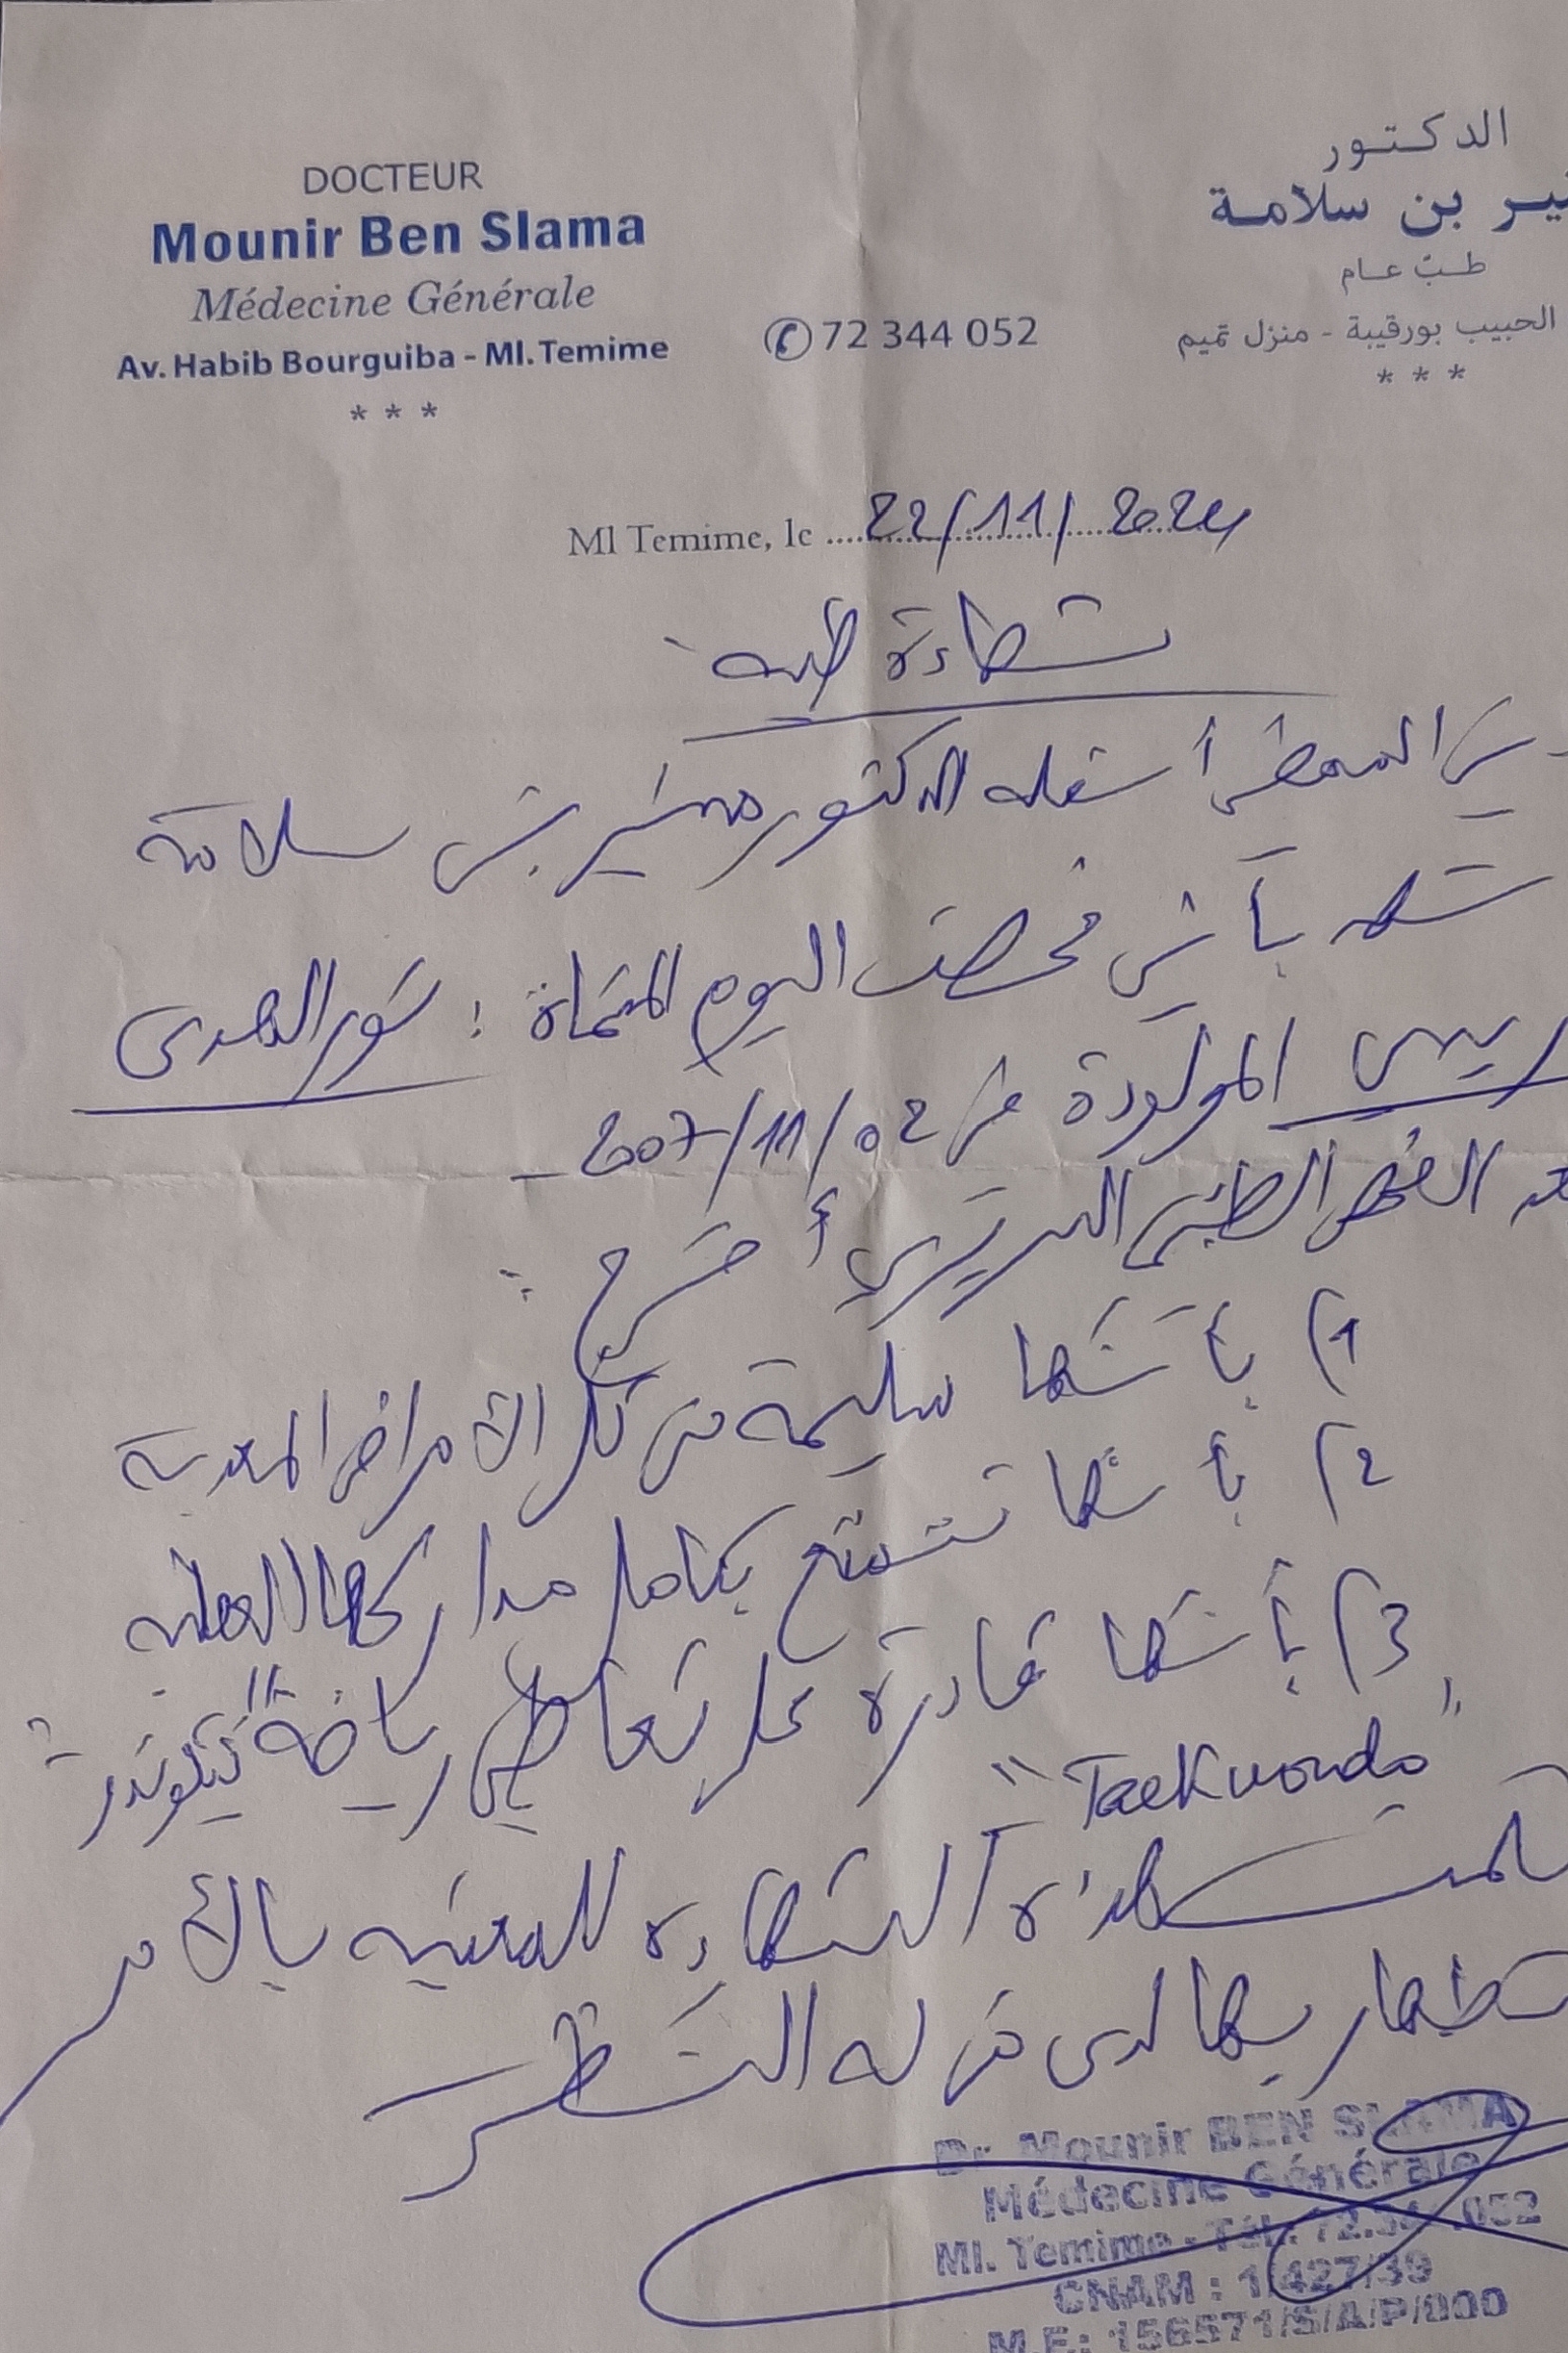 DOCTEUR
Mounir Ben Slama
Médecine Générale
Av. Habib Bourguiba - Ml. Temime
* * *
✆ 72 344 052
الدكتور
ير بن سلامة
طب عام
الحبيب بورقيبة - منزل تميم
* * *
Ml Temime, le 22/11/2024
شهادة طبية
الممضي أسفله الدكتور منير بن سلامة
بأنني فحصت اليوم المسماة : نور الهدى
المولودة في 02/11/2007
الفحص الطبي السريري أصرح :
1) بأنها سليمة من كل الأمراض المعدية
2) بأنها تتمتع بكامل مداركها العقلية
3) بأنها قادرة على تعاطي رياضة "تيكوندو"
"Taekwondo"
هذه الشهادة للمعنية بالأمر
بها لدى من له النظر
Dr. Mounir BEN SLAMA
Médecine Générale
Ml. Temime - Tél.: 72.344.052
CNAM : 1/427/39
M.F: 156571/S/A/P/000